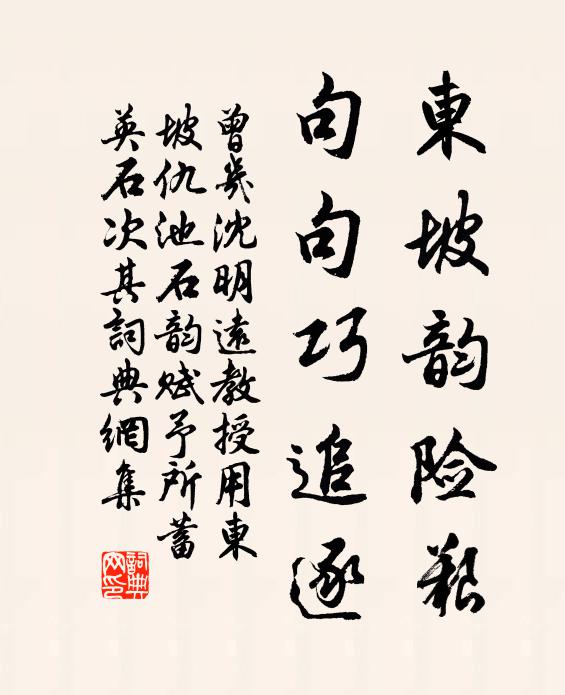 東坡韵险艱
句句巧追逐
曾幾沈明遠教授用東
坡仇池石韵赋予所蓄
英石次其詞典網集
詞典
网印